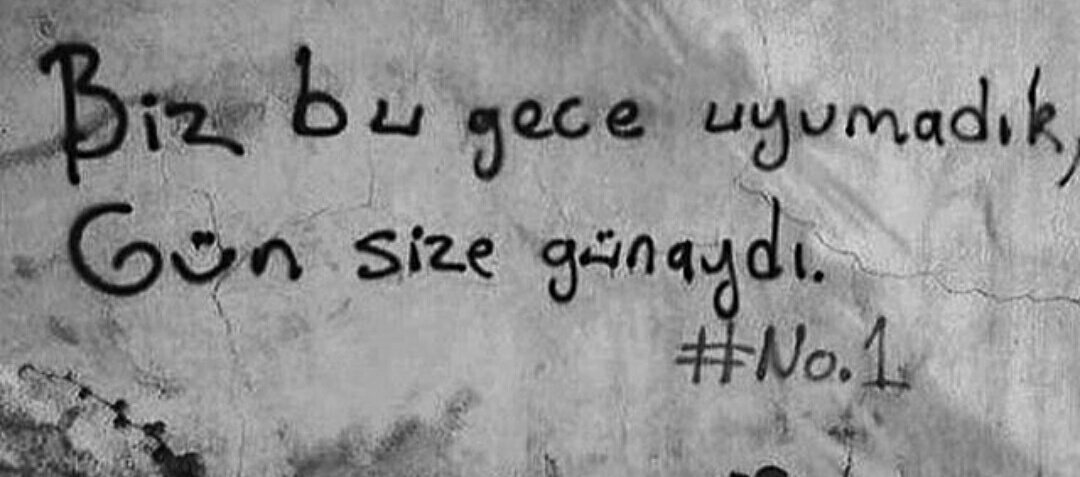 Biz bu gece uyumadık,
Gün size günaydı.
#No.1